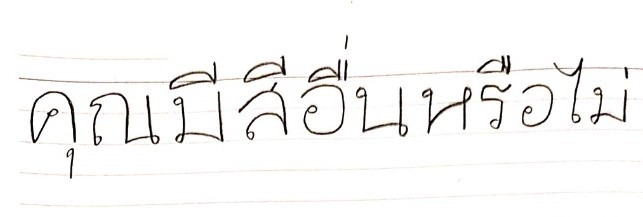 คุณมีสีอื่นหรือไม่